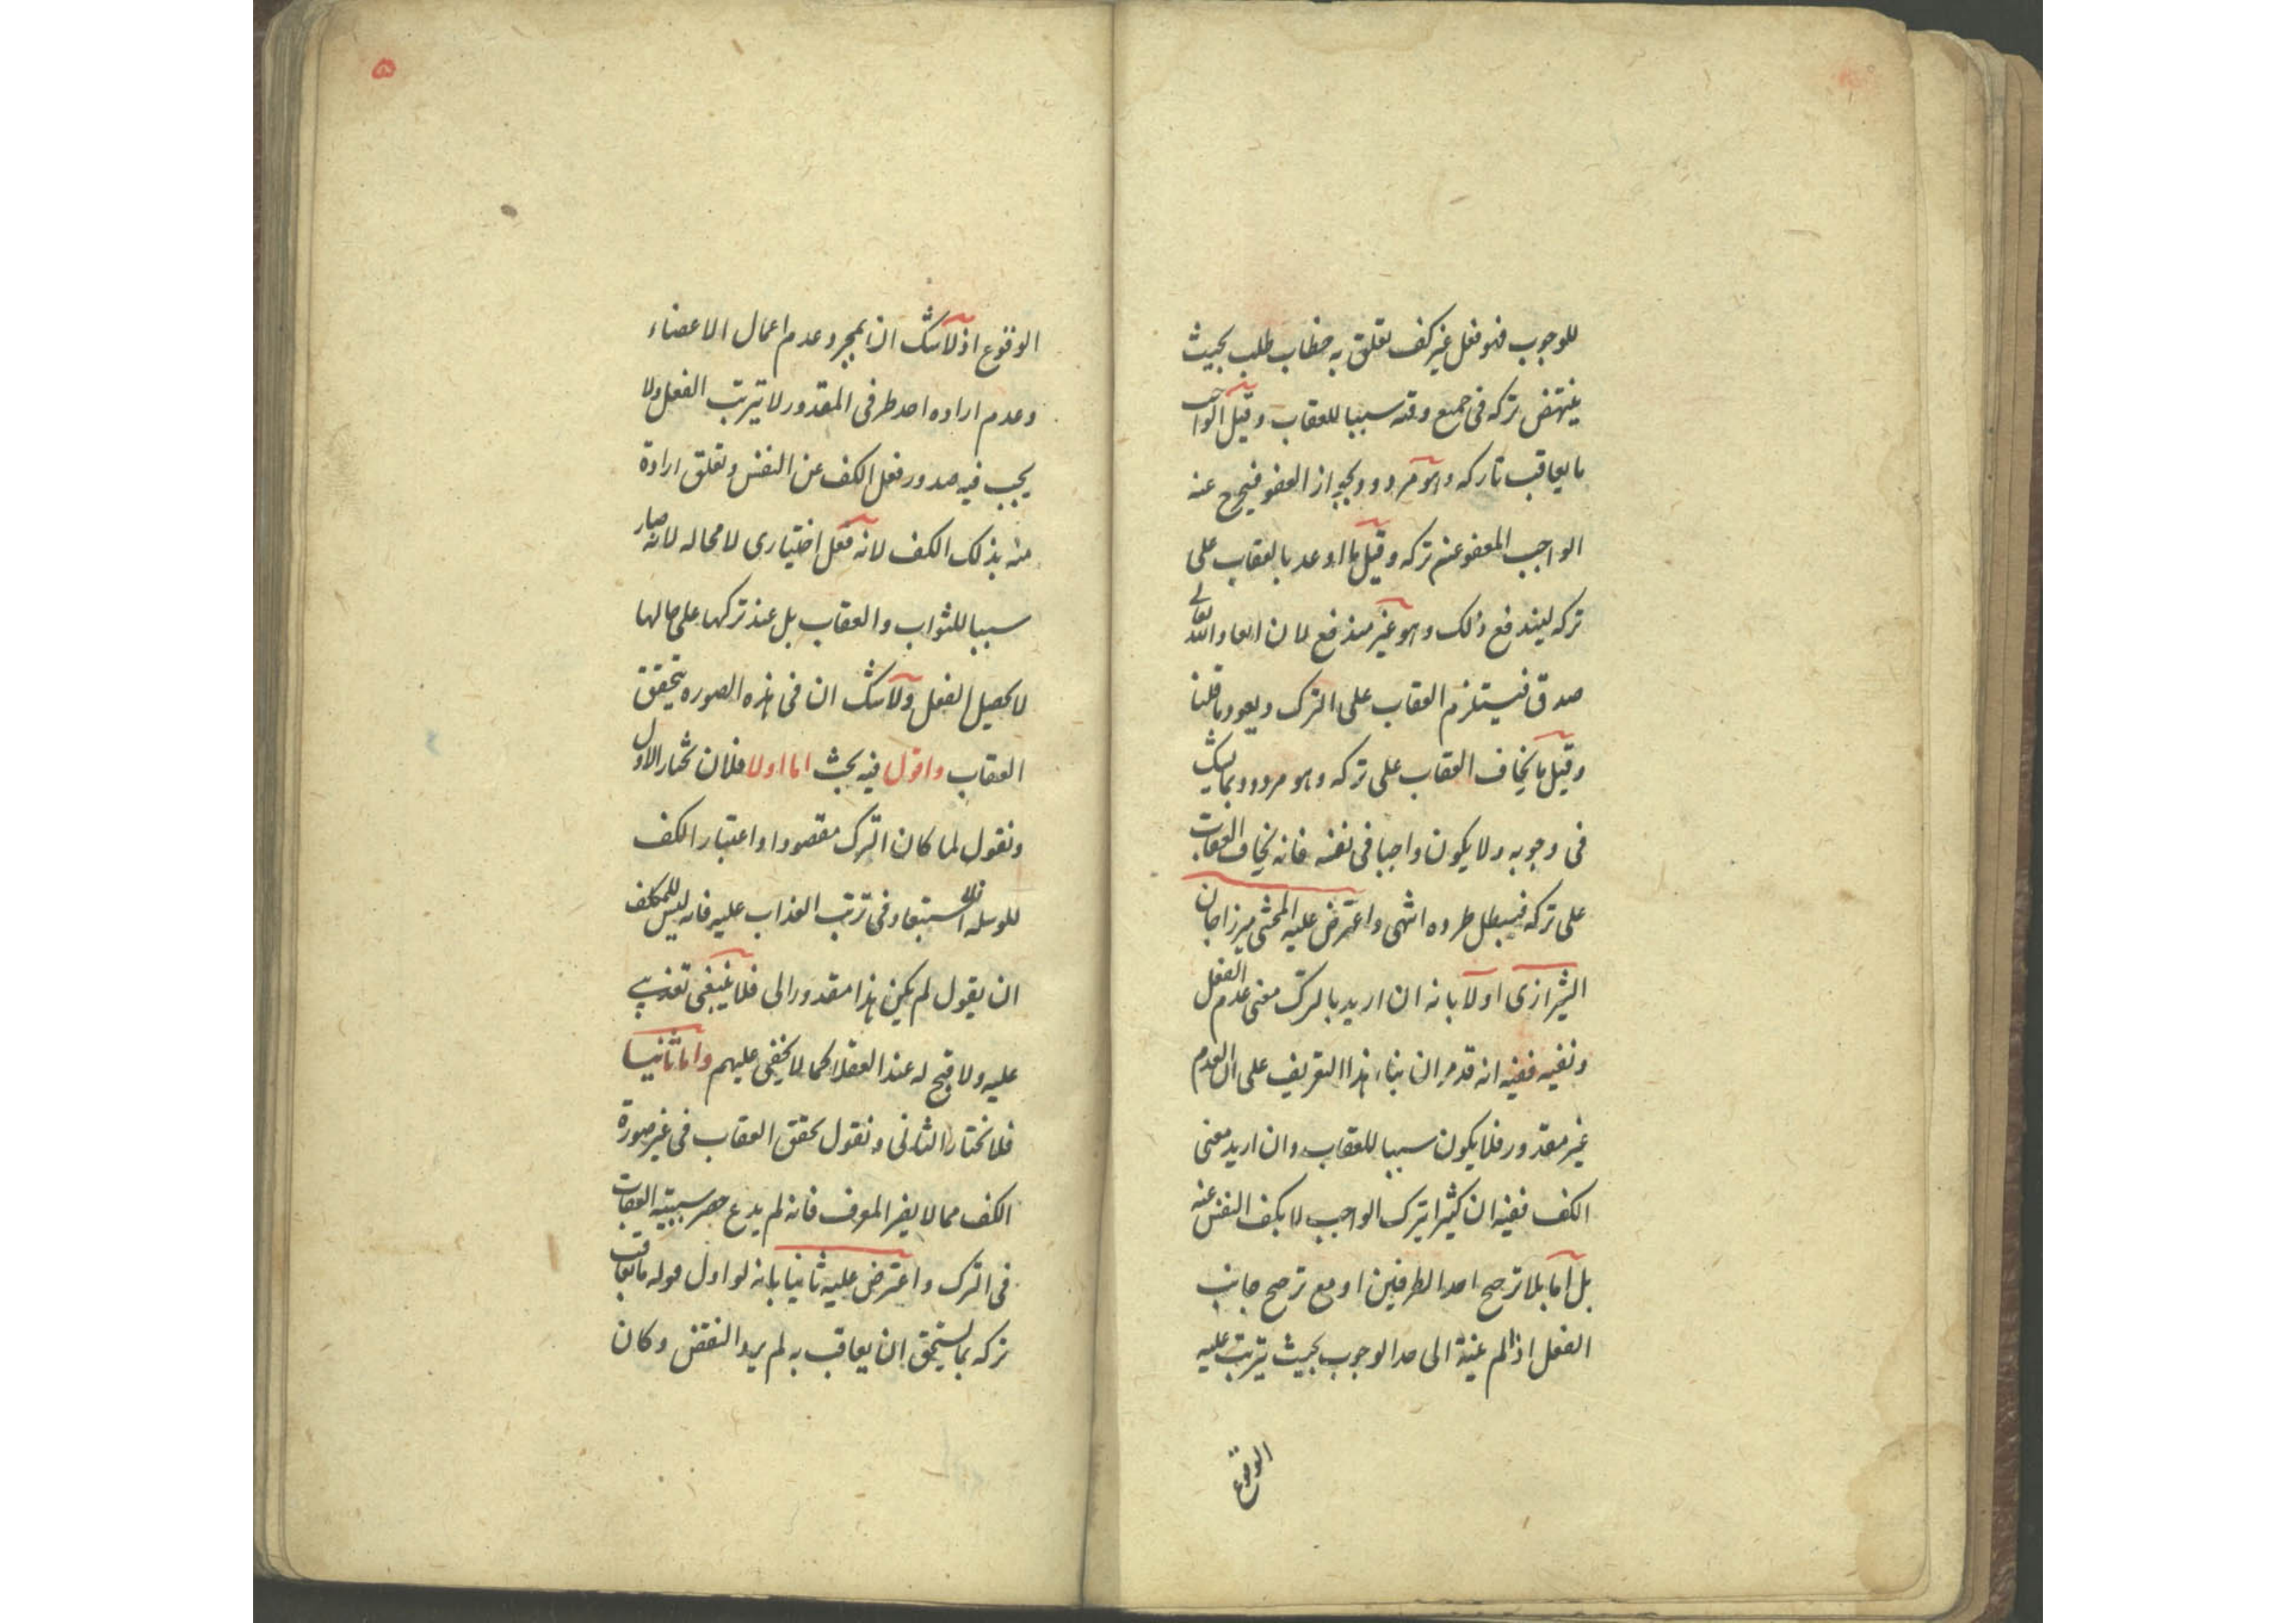 للوجوب فهو فعل غير كف تعلق به خطاب طلب بحيث
ينتهض تركه فى جميع وقته سببا للعقاب وقيل الواجب
ما يعاقب تاركه وهو مردود بجواز العفو فيخرج عنه
الواجب المعفو عنه تركه وقيل ما اوعد بالعقاب على
تركه ليندفع ذلك وهو غير مندفع لان ايعاد الله تعالى
صدق فيستلزم العقاب على الترك ويعود ما قلنا
وقيل ما يخاف العقاب على تركه وهو مردود بما يشك
فى وجوبه ولا يكون واجبا فى نفسه فانه يخاف العقاب
على تركه فيبطل طرده انتهى واعترض عليه المحشى ميرزاجان
الشيرازى اولا بانه ان اريد بالترك معنى عدم الفعل
ونفيه ففيه انه قد مر ان بناء هذا التعريف على ان العدم
غير مقدور فلا يكون سببا للعقاب وان اريد معنى
الكف ففيه ان كثيرا يترك الواجب لا بكف النفس عنه
بل اما بلا ترجيح احد الطرفين او مع ترجيح جانب
الفعل اذا لم ينته الى حد الوجوب بحيث يترتب عليه
الوقوع
۵
الوقوع اذ لا شك ان بمجرد عدم اعمال الاعضاء
وعدم اراده احد طرفى المقدور لا يترتب الفعل ولا
يجب فيه صدور فعل الكف عن النفس وتعلق ارادة
منه بذلك الكف لانه فعل اختيارى لا محاله لانه صار
سببا للثواب والعقاب بل عند تركها على حالها
لا يحصل الفعل ولا شك ان فى هذه الصوره يتحقق
العقاب واقول فيه بحث اما اولا فلان نختار الاول
ونقول لما كان الترك مقصودا واعتبار الكف
للوسيله فلا استبعاد فى ترتب العذاب عليه فانه ليس للمكلف
ان يقول لم يكن هذا مقدورا لى فلا ينبغى تعذيبى
عليه ولا قبح له عند العقلا كما لا يخفى عليهم واما ثانيا
فلا نختار الثانى ونقول تحقق العقاب فى غير صورة
الكف مما لا يضر المعرف فانه لم يدع حصر سببية العقاب
فى الترك واعترض عليه ثانيا بانه لو اول قوله ما يعاقب
تركه بما يستحق ان يعاقب به لم يرد النقض وكان